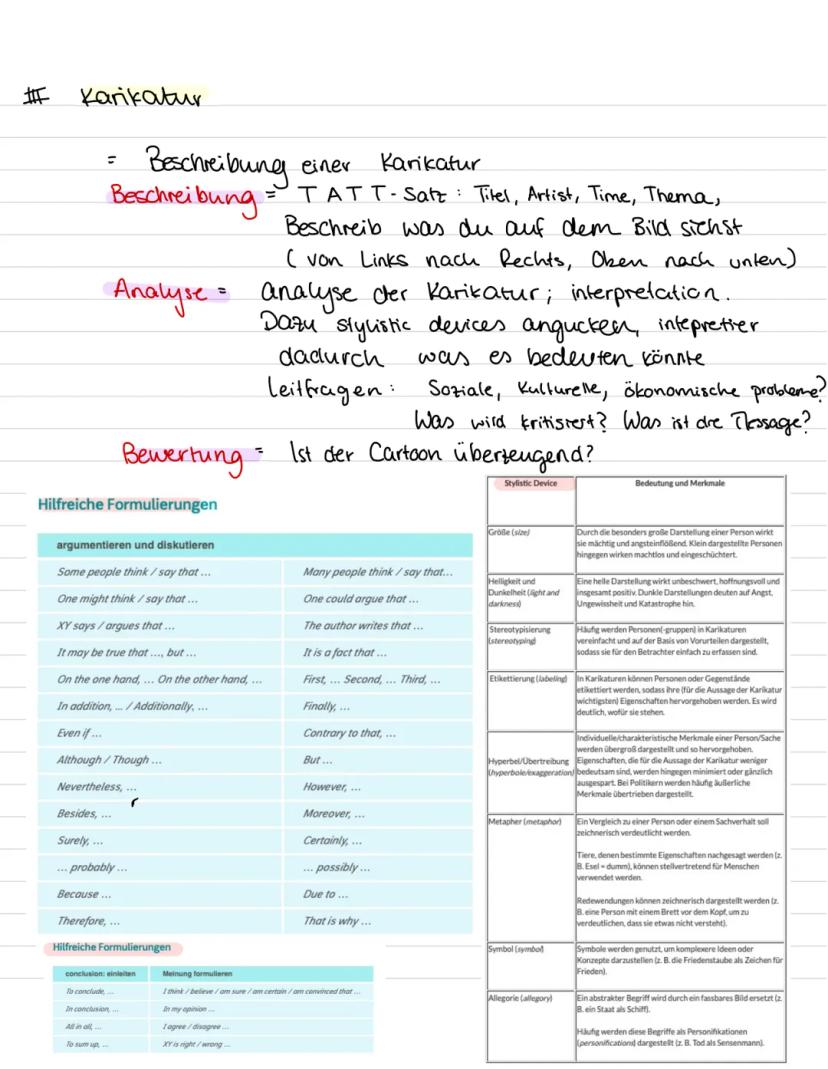 III Karikatur
= Beschreibung einer Karikatur
Beschreibung = TATT-Satz : Titel, Artist, Time, Thema,
Beschreib was du auf dem Bild siehst
( von Links nach Rechts, Oben nach unten)
Analyse = analyse der Karikatur; interpretation.
Dazu stylistic devices angucken, intepretier
dadurch was es bedeuten könnte
Leitfragen : Soziale, Kulturelle, ökonomische probleme?
Was wird kritisiert? Was ist die Message?
Bewertung = Ist der Cartoon überzeugend?
Hilfreiche Formulierungen
argumentieren und diskutieren
Some people think / say that ... Many people think / say that...
One might think / say that ... One could argue that ...
XY says / argues that ... The author writes that ...
It may be true that ..., but ... It is a fact that ...
On the one hand, ... On the other hand, ... First, ... Second, ... Third, ...
In addition, ... / Additionally, ... Finally, ...
Even if ... Contrary to that, ...
Although / Though ... But ...
Nevertheless, ... However, ...
Besides, ... Moreover, ...
Surely, ... Certainly, ...
... probably ... ... possibly ...
Because ... Due to ...
Therefore, ... That is why ...
Hilfreiche Formulierungen
conclusion: einleiten Meinung formulieren
To conclude, ... I think / believe / am sure / am certain / am convinced that ...
In conclusion, ... In my opinion ...
All in all, ... I agree / disagree ...
To sum up, ... XY is right / wrong ...
Stylistic Device Bedeutung und Merkmale
Größe (size) Durch die besonders große Darstellung einer Person wirkt
sie mächtig und angsteinflößend. Klein dargestellte Personen
hingegen wirken machtlos und eingeschüchtert.
Helligkeit und Eine helle Darstellung wirkt unbeschwert, hoffnungsvoll und
Dunkelheit (light and insgesamt positiv. Dunkle Darstellungen deuten auf Angst,
darkness) Ungewissheit und Katastrophe hin.
Stereotypisierung Häufig werden Personen(-gruppen) in Karikaturen
(stereotyping) vereinfacht und auf der Basis von Vorurteilen dargestellt,
sodass sie für den Betrachter einfach zu erfassen sind.
Etikettierung (labeling) In Karikaturen können Personen oder Gegenstände
etikettiert werden, sodass ihre (für die Aussage der Karikatur
wichtigsten) Eigenschaften hervorgehoben werden. Es wird
deutlich, wofür sie stehen.
Individuelle/charakteristische Merkmale einer Person/Sache
werden übergroß dargestellt und so hervorgehoben.
Hyperbel/Übertreibung Eigenschaften, die für die Aussage der Karikatur weniger
(hyperbole/exaggeration) bedeutsam sind, werden hingegen minimiert oder gänzlich
ausgespart. Bei Politikern werden häufig äußerliche
Merkmale übertrieben dargestellt.
Metapher (metaphor) Ein Vergleich zu einer Person oder einem Sachverhalt soll
zeichnerisch verdeutlicht werden.
Tiere, denen bestimmte Eigenschaften nachgesagt werden (z.
B. Esel = dumm), können stellvertretend für Menschen
verwendet werden.
Redewendungen können zeichnerisch dargestellt werden (z.
B. eine Person mit einem Brett vor dem Kopf, um zu
verdeutlichen, dass sie etwas nicht versteht).
Symbol (symbol) Symbole werden genutzt, um komplexere Ideen oder
Konzepte darzustellen (z. B. die Friedenstaube als Zeichen für
Frieden).
Allegorie (allegory) Ein abstrakter Begriff wird durch ein fassbares Bild ersetzt (z.
B. ein Staat als Schiff).
Häufig werden diese Begriffe als Personifikationen
(personifications) dargestellt (z. B. Tod als Sensenmann).